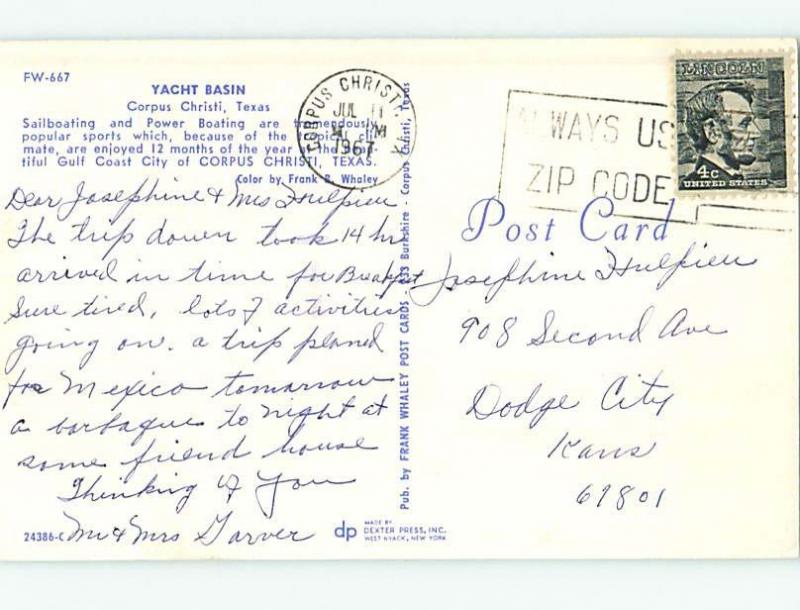 FW-667
YACHT BASIN
Corpus Christi, Texas
Sailboating and Power Boating are tremendously
popular sports which, because of the cli-
mate, are enjoyed 12 months of the year
tiful Gulf Coast City of CORPUS CHRISTI, TEXAS.
Color by Frank R. Whaley
Dear Josephine & Mrs Hulpieu
The trip down took 14 hr
arrived in time for Breakfast
Sure tired, lots of activities
going on. a trip planed
for Mexico tomorrow
a barbaque to night at
some friend house
Thinking of You
Mr & Mrs Garver
24386-C
dp
MADE BY
DEXTER PRESS, INC.
WEST NYACK, NEW YORK
Pub. by FRANK WHALEY POST CARDS - 833 Burkshire - Corpus Christi, Texas
CORPUS CHRISTI, TX
JUL 11
M
1967
ALWAYS US
ZIP CODE
LINCOLN
4c
UNITED STATES
Post Card
Josephine Hulpieu
908 Second Ave
Dodge City
Kans
67801